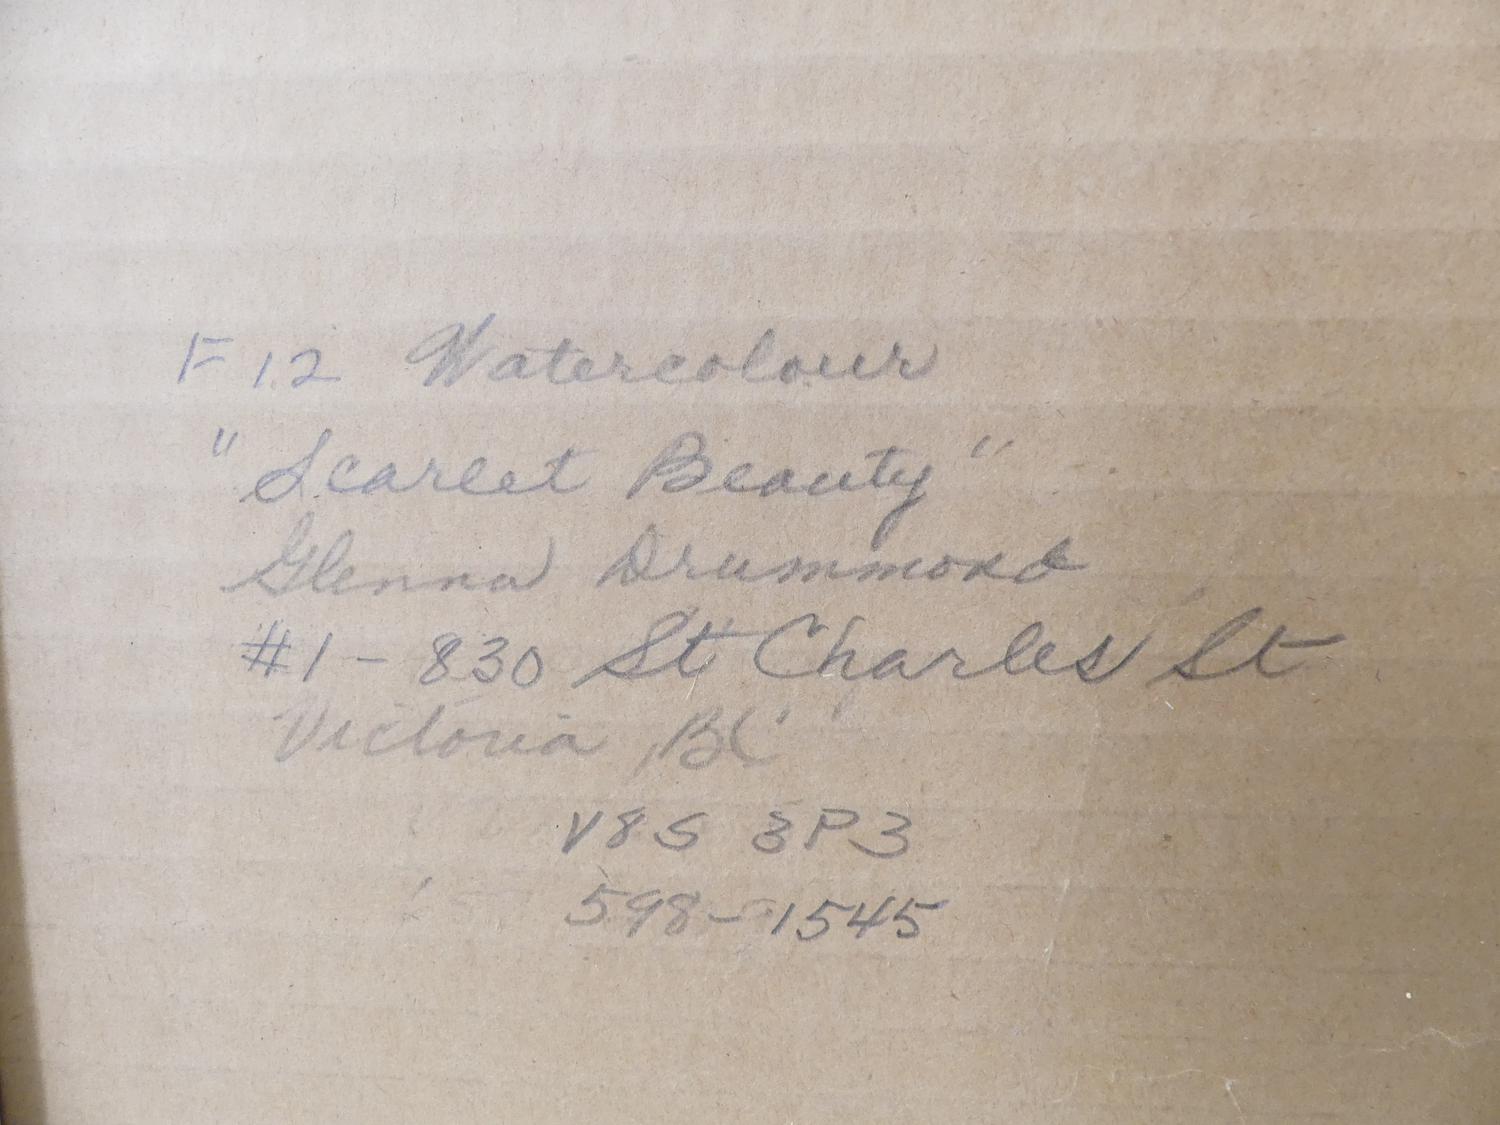 F 12 Watercolour
"Scarlet Beauty"
Glenna Drummond
#1 - 830 St Charles St
Victoria BC
V8S 3P3
598-1545